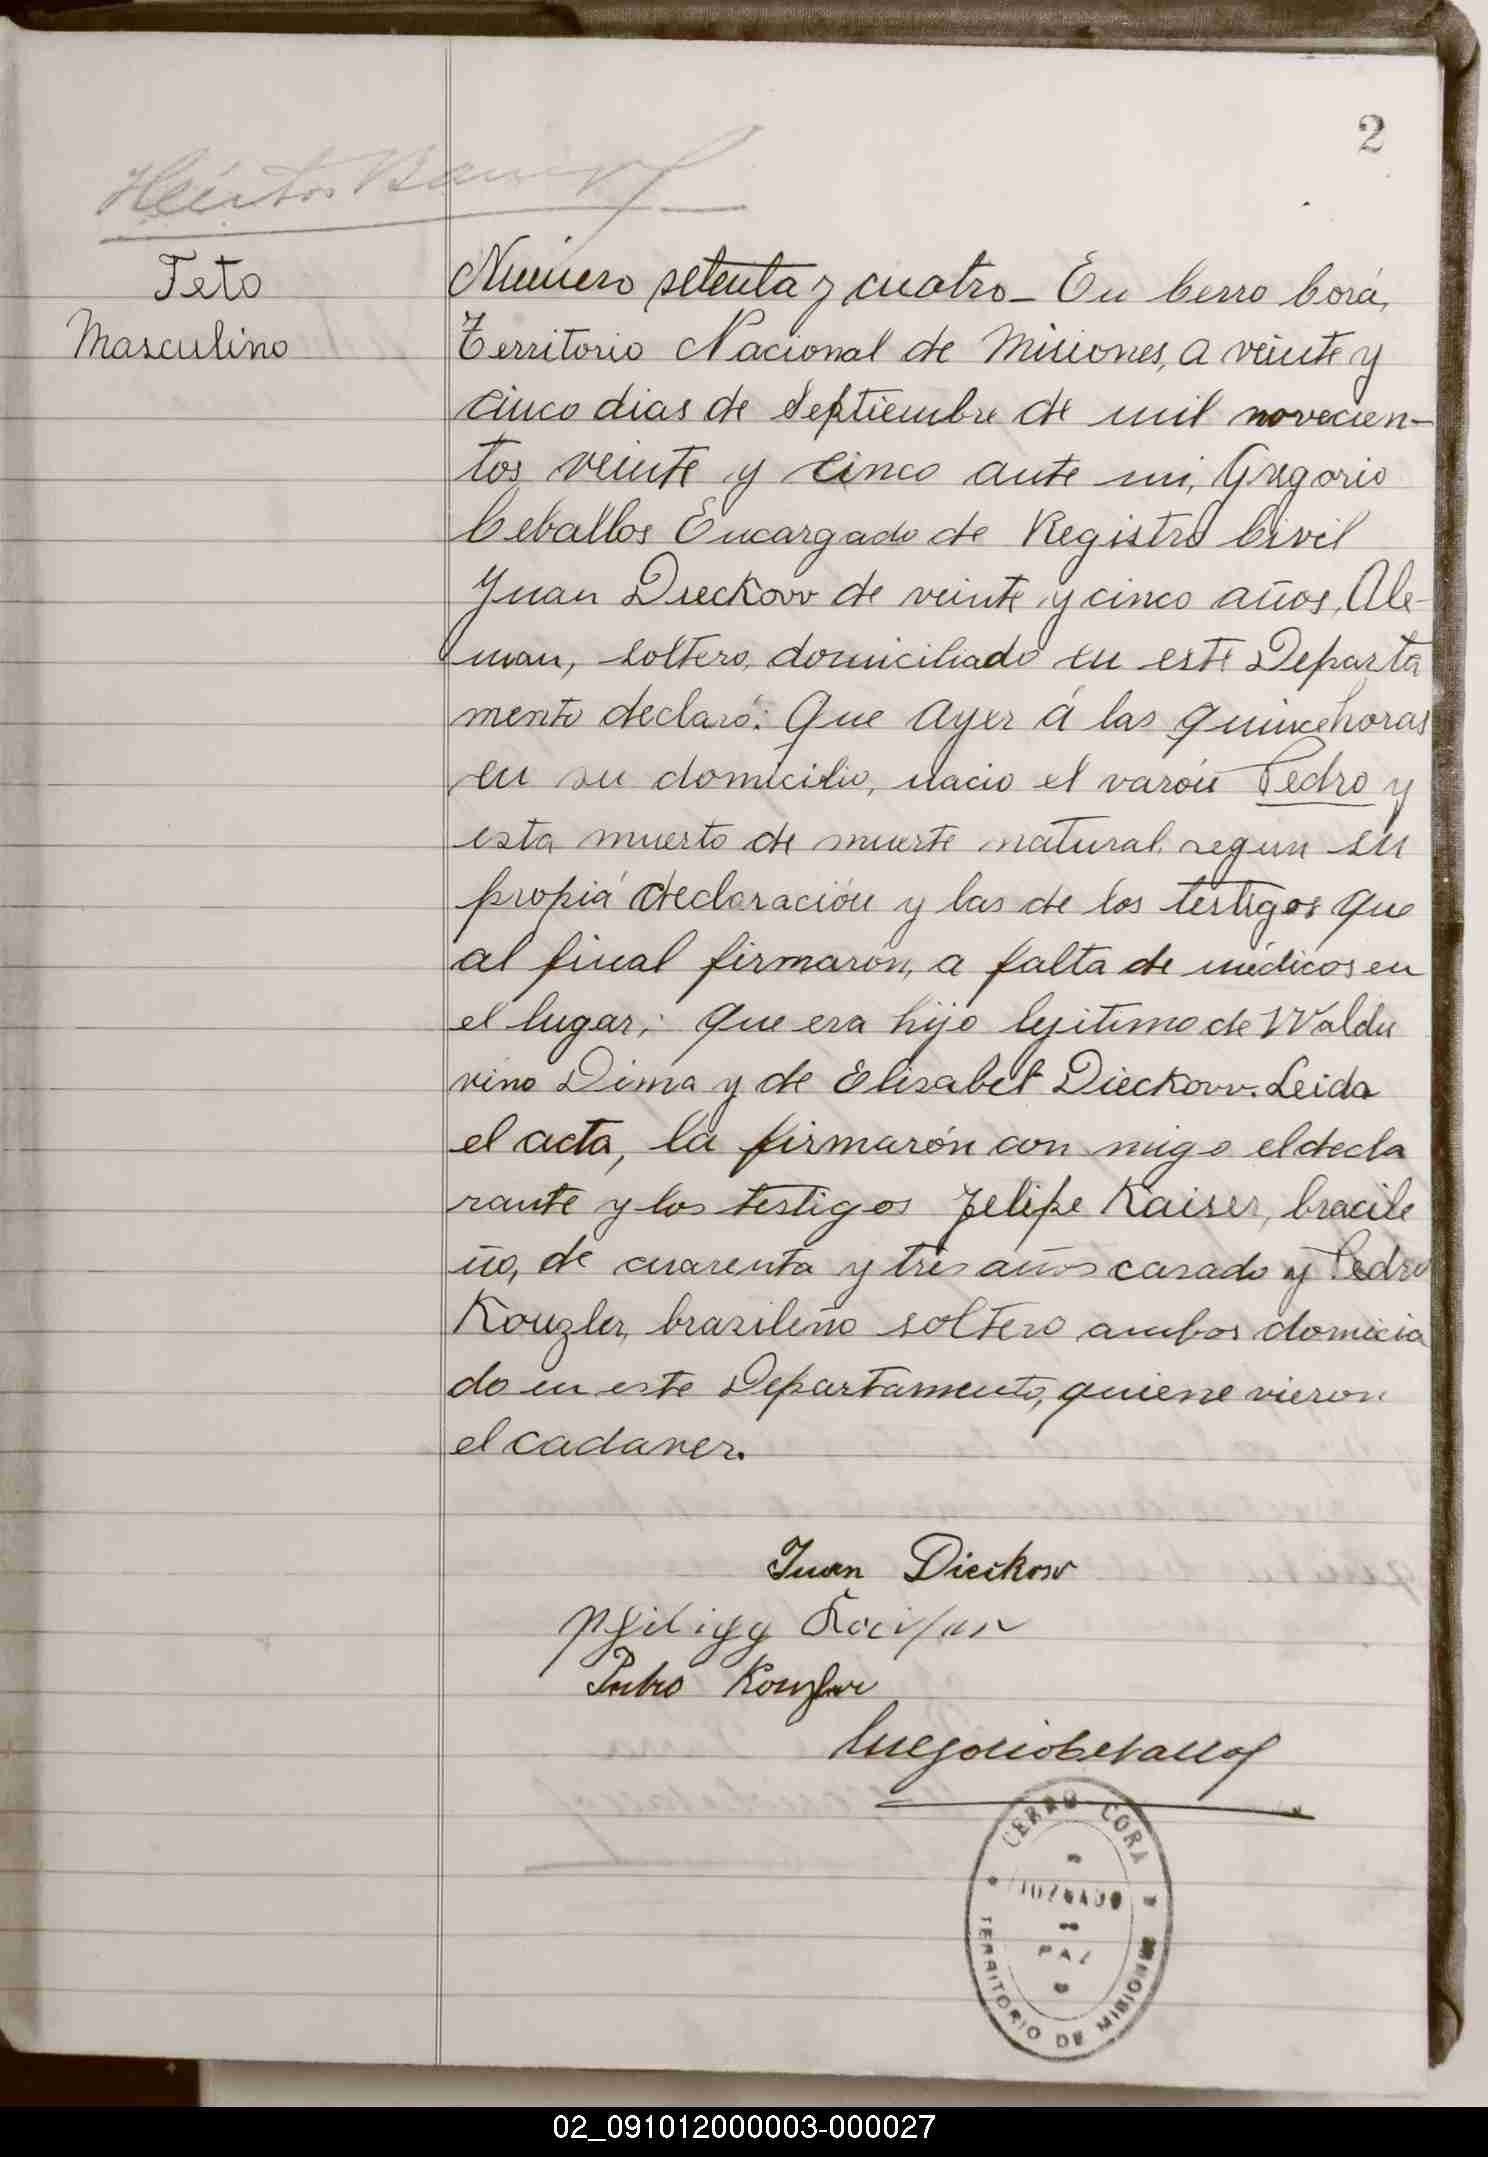 2
Teto
Masculino
Número setenta y cuatro_ En Cerro Corá,
Territorio Nacional de Misiones, a veinte y
cinco dias de Septiembre de mil novecien-
tos veinte y cinco ante mi, Gregorio
Ceballos Encargado de Registro Civil
Juan Dieckow de veinte y cinco años, Ale-
man, soltero, domiciliado en este Departa
mento declaró: Que ayer á las quince horas
en su domicilio, nacio el varón Pedro y
esta muerto de muerte natural, segun su
propiá declaración y las de los testigos que
al final firmarón, a falta de médicos en
el lugar; que era hijo lejitimo de Waldu
vino Dima y de Elisabet Dieckow. Leida
el acta, la firmarón con migo el decla
rante y los testigos Felipe Kaiser, bracile
ño, de cuarenta y tres años casado y Pedro
Kouzler, brasileño soltero ambos domicia
do en este Departamento, quiene vieron
el cadaver.
Juan Dieckow
Pedro Kouzler
Gregorio Ceballos
CERRO CORA
JUZGADO
PAZ
TERRITORIO DE MISIONES
02_091012000003-000027